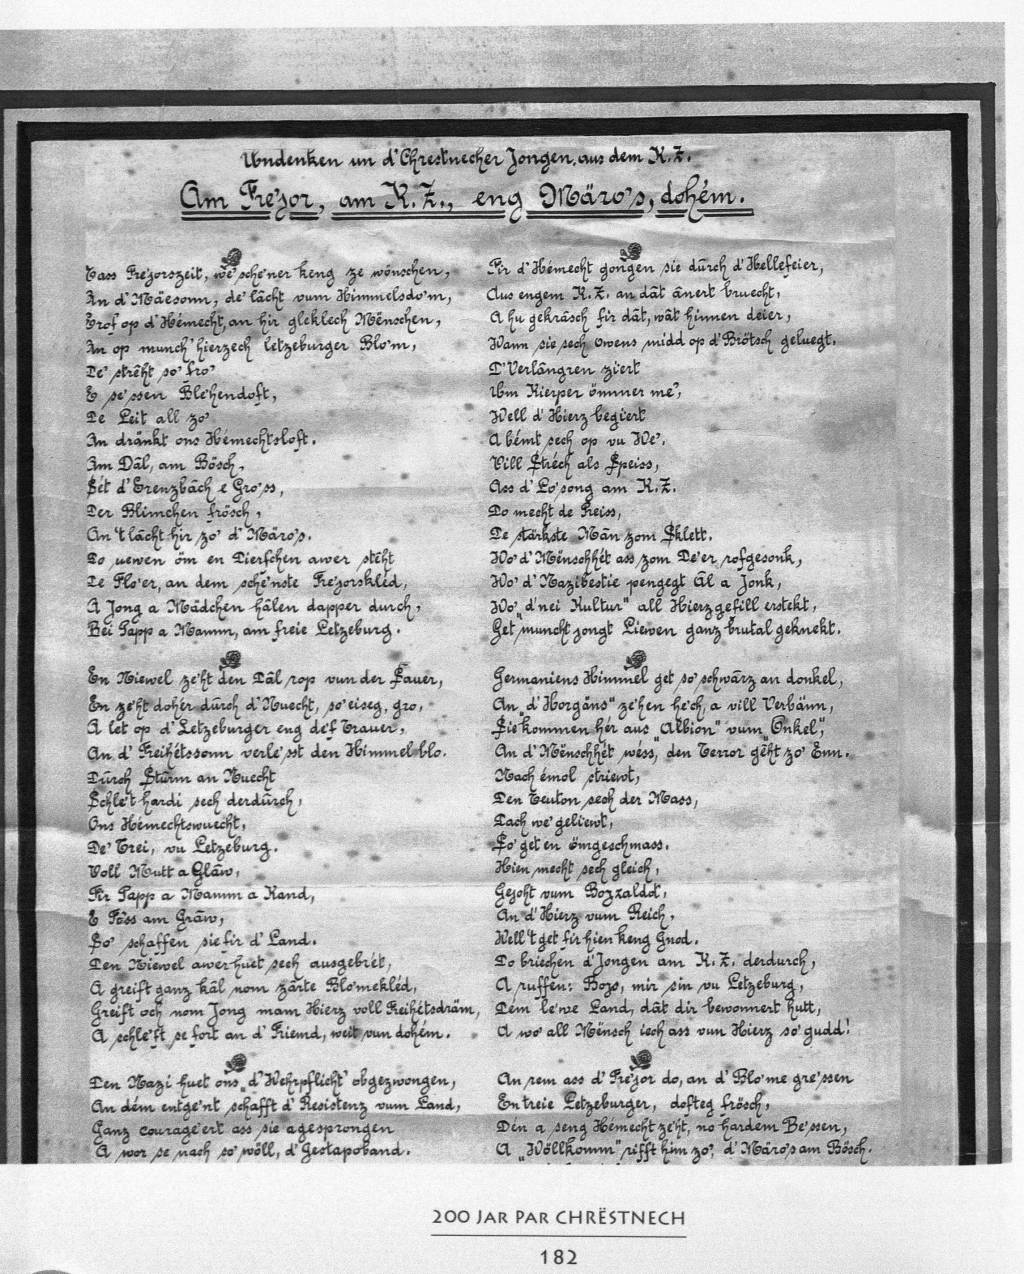 Undenken un d'Chrestnecher Jongen, aus dem K.Z.
Am Fre'jor, am K.Z., eng Märo's, dohém.
Tass Fre'jorszeit, we' sche'ner keng ze wönschen,
An d'Mäesonn, de' lächt vum Himmelsdo'm,
Erof op d'Hémecht, an hir gleklech Mënschen,
An op munch' hierzech letzeburger Blo'm,
De' strêht so' fro'
E se'ssen Ble'hendoft,
De Leit all zo'
An dränkt ons Hémechtsloft.
Am Däl, am Bösch,
Sét d'Erenzbäch e Gro'ss,
Der Blimchen frösch,
An 't lächt hir zo' d'Märo's.
Do uewen öm en Dierfchen awer stêht
De Flo'er, an dem sche'nste Fre'jorskléd,
A Jong a Mädchen hâlen dapper durch,
Bei Papp a Mamm, am freie Letzeburg.
En Niewel ze'ht den Däl rop vun der Sauer,
En ze'ht dohér dûrch d'Nuecht, so' eiseg, gro,
A lot op d'Letzeburger eng de'f Trauer,
An d'Freihétssonn verle'sst den Himmel blo.
Dûrch Sturm an Nuecht
Schle't hardi sech derdûrch,
Ons Hémechtswuecht,
De' Trei, vu Letzeburg.
Voll Mutt a Gläw,
Fir Papp a Mamm a Kand,
E Fo'ss am Gräw,
So' schaffen sie fir d'Land.
Den Niewel awer huet sech ausgebrét,
A greift ganz käl nom zärte Blo'mekléd,
Greift och nom Jong mam Hierz voll Freihétsdräm,
A schle'ft se fort an d'Friemd, weit vun dohém.
Den Nazi huet ons „d'Wehrpflicht" obgezwongen,
An dém entge'nt schafft d'Resistenz vum Land,
Ganz courage'ert ass sie agesprongen
A wor se nach so' wöll, d'Gestapoband.
Fir d'Hémecht gongen sie dûrch d'Hellefeier,
Aus engem K.Z. an dât ânert bruecht,
A hu gekräsch fir dât, wât hinnen deier,
Wann sie sech owens midd op d'Brötsch geluegt.
D'Verlängren ziert
Um Kierper ömmer me',
Well d'Hierz begiert
A bémt sech op vu We'.
Vill Stréch als Speiss,
Ass d'Lo'song am K.Z.
Do mecht de Preiss,
De stärkste Män zom Sklett.
Wo' d'Mënschhét ass zom De'er rofgesonk,
Wo' d'Nazibestie pengegt Al a Jonk,
Wo' „d'nei Kultur" all Hierzgefill erstekt,
Get muncht jongt Liewen ganz brutal geknekt.
Germaniens Himmel get so' schwärz an donkel,
An „d'Horgäns" ze'hen he'ch, a vill Verbänn,
Sie kommen hér aus „Albion" vum „Onkel",
An d'Mënschhét wéss, den Terror gêht zo' Enn.
Nach émol striewt,
Den Teuton sech der Mass,
Dach we' geliewt,
So' get en ömgeschmass.
Hien mecht sech gleich,
Gejoht vum Bozzaldot,
An d'Hierz vum Reich,
Well 't get fir hien keng Gnod.
Do briechen d'Jongen am K.Z. derdurch,
A ruffen: Bozo, mir sin vu Letzeburg,
Dém le'we Land, dät dir bewonnert hutt,
A wo' all Mënsch iech ass vun Hierz so' gudd!
An rem ass d'Fre'jor do, an d'Blo'me gre'ssen
En treie Letzeburger, dofteg frösch,
Dén a seng Hémecht ze'ht, no hardem Be'ssen,
A „Wöllkomm" rifft him zo', d'Märo's am Bösch.
200 JAR PAR CHRËSTNECH
182